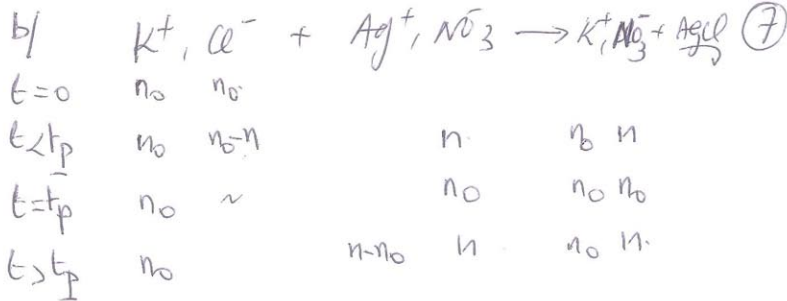 b/ K⁺, Cl⁻ + Ag⁺, NO⁻₃ → K⁺, NO⁻₃ + AgCl ⑦
t=0 n₀ n₀
t<tp n₀ n₀-n n n₀ n
t=tp n₀ ~ n₀ n₀ n₀
t>tp n₀ n-n₀ n n₀ n